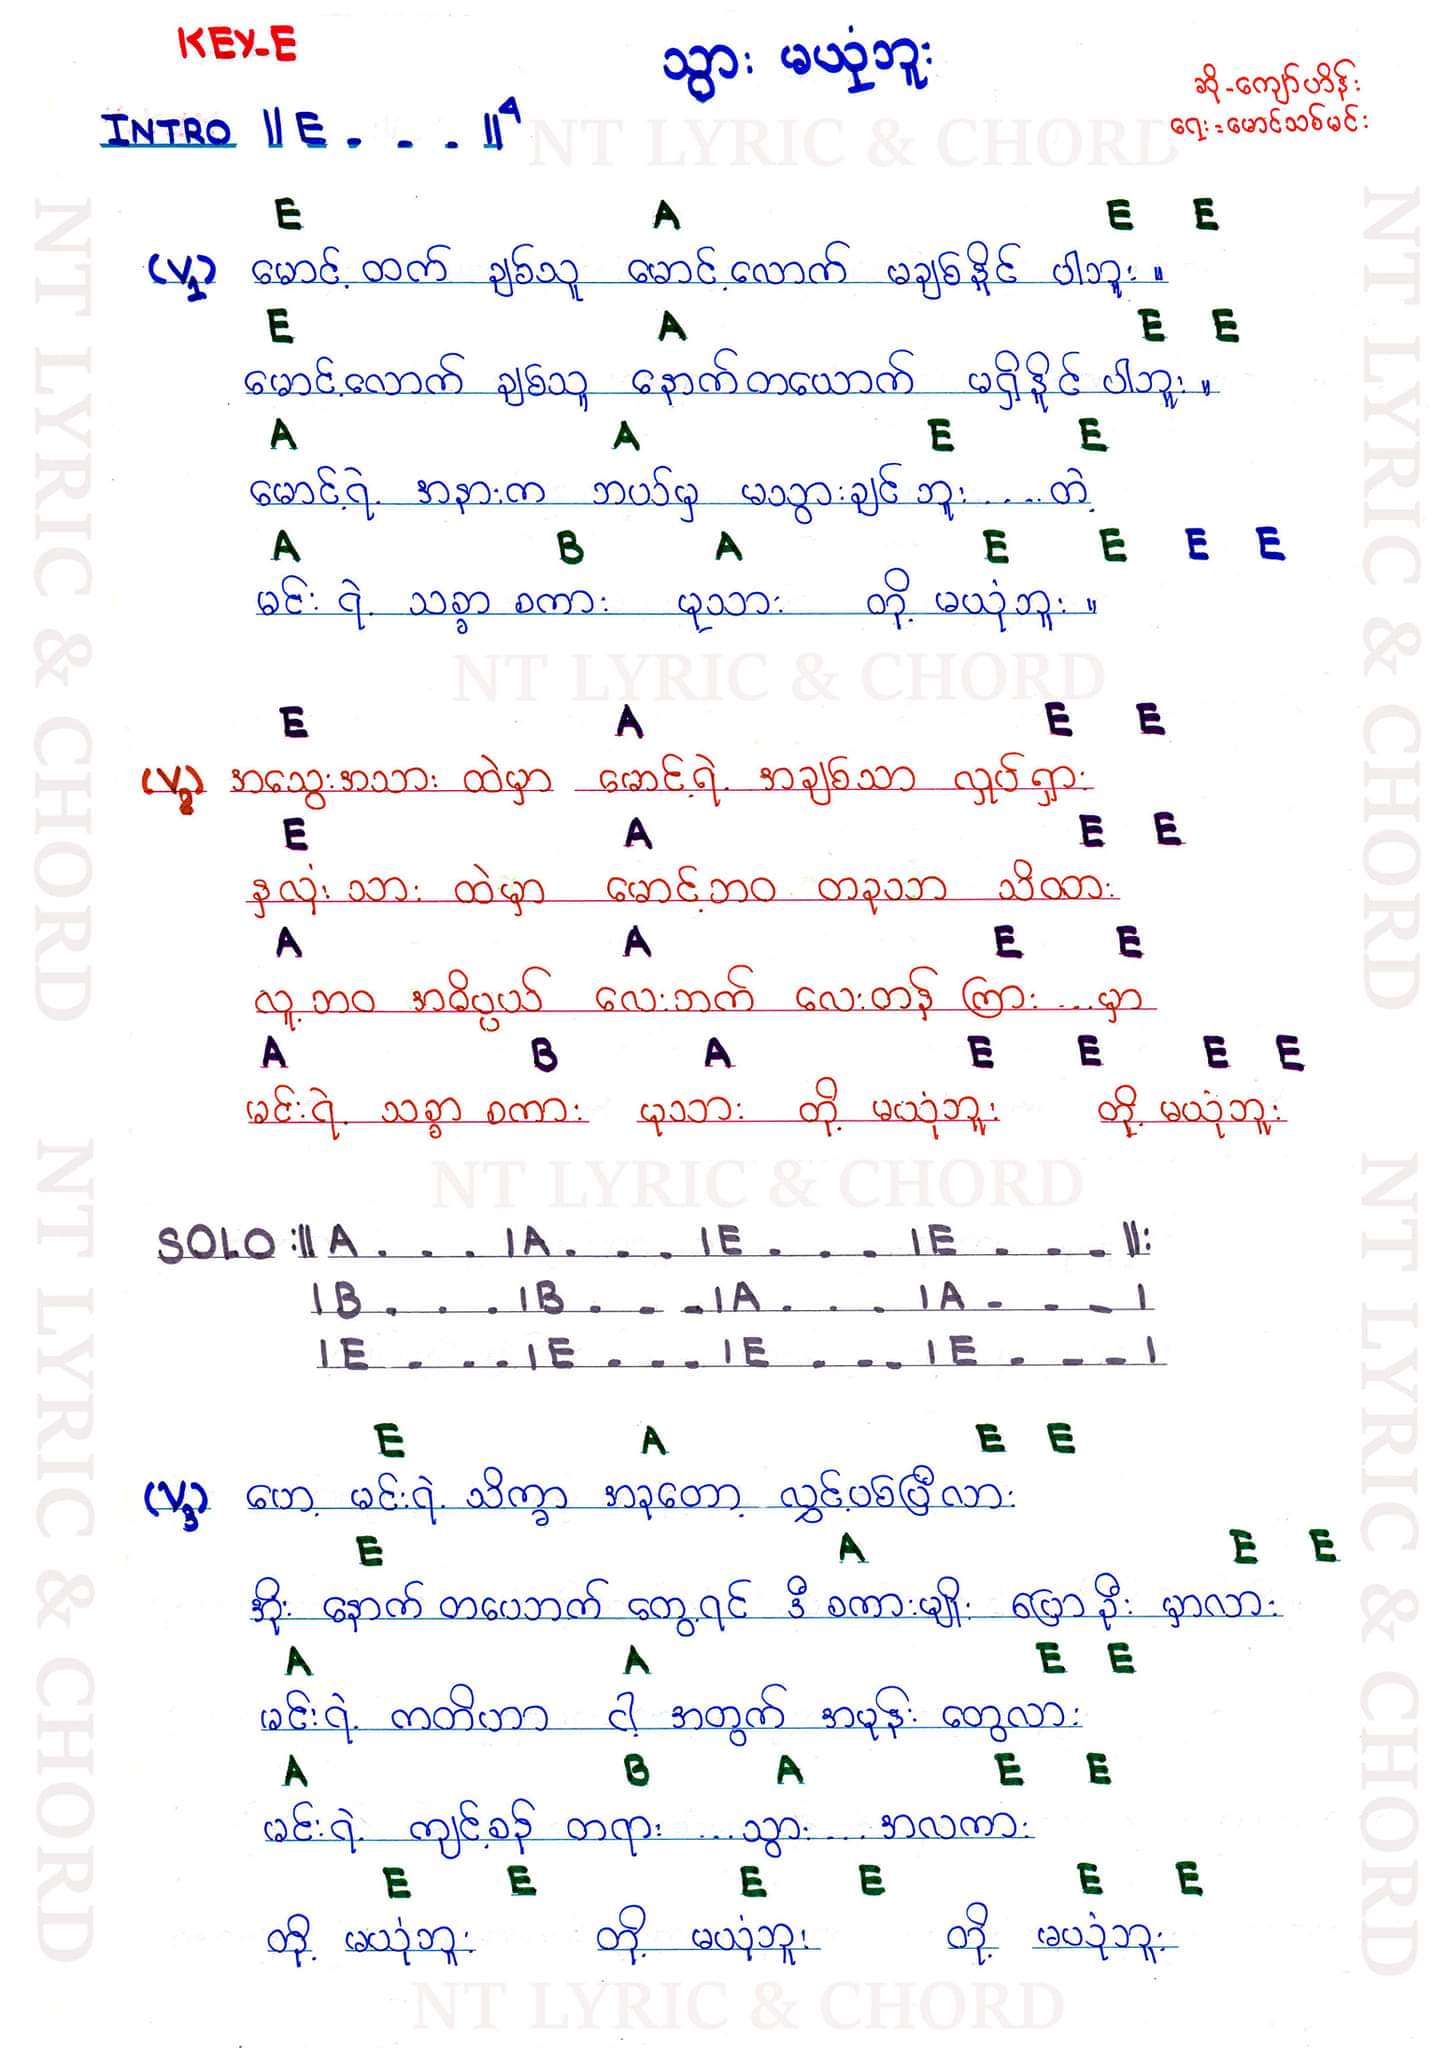 KEY-E
သွား မယုံဘူး
ဆို-ကျော်ဟိန်း
ရေး-မောင်သစ်မင်း
INTRO ||E . . . ||4
NT LYRIC & CHORD
E A E E
(V1) မောင့်ထက် ချစ်သူ မောင့်လောက် မချစ်နိူင် ပါဘူး။
E A E E
မောင့်လောက် ချစ်သူ နောက်တယောက် မရှိနိူင် ပါဘူး။
A A E E
မောင့်ရဲ့ အနားက ဘယ်မှ မသွားချင် ဘူး.....တဲ့
A B A E E E E
မင်းရဲ့ သစ္စာ စကား မုသား တို့ မယုံဘူး။
NT LYRIC & CHORD
E A E E
(V2) အသွေးအသား ထဲမှာ မောင့်ရဲ့ အချစ်သာ လှုပ်ရှား
E A E E
နှလုံးသား ထဲမှာ မောင့်ဘဝ တခုသာ သိထား
A A E E
လူ့ဘဝ အဓိပ္ပယ် လေးဘက် လေးတန် ကြား...မှာ
A B A E E E E
မင်းရဲ့ သစ္စာ စကား မုသား တို့ မယုံဘူး တို့ မယုံဘူး
NT LYRIC & CHORD
SOLO :|| A . . . | A . . . | E . . . | E . . . ||:
| B . . . | B . . . | A . . . | A . . . |
| E . . . | E . . . | E . . . | E . . . |
E A E E
(V3) ဟေ့ မင်းရဲ့ သိက္ခာ အခုတော့ လွှင့်ပစ်ပြီလား
E A E E
အိုး နောက်တပေဘက် တွေ့ရင် ဒီ စကားမျိုး ပြောဦး မှာလား
A A E E
မင်းရဲ့ ကတိဟာ ငါ့ အတွက် အမုန်း တွေလား
A B A E E
မင်းရဲ့ ကျင့်စဉ် တရား ...သွား... အလကား
E E E E E E
တို့ မယုံဘူး တို့ မယုံဘူး တို့ မယုံဘူး
NT LYRIC & CHORD
NT LYRIC & CHORD
NT LYRIC & CHORD
NT LYRIC & CHORD
NT LYRIC & CHORD